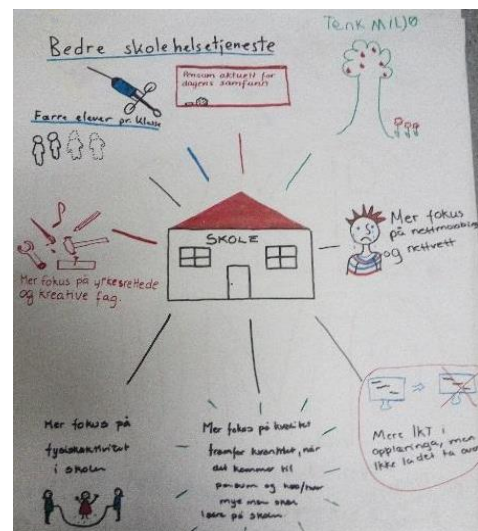 Bedre skolehelsetjeneste
Tenk MILJØ
Pensum aktuelt for
dagens samfunn
Færre elever pr. klasse
SKOLE
Mer fokus
på nettmobbing
og nettvett
Mer fokus på yrkesrettede
og kreative fag.
Mer fokus på
fysiskaktivitet
i skolen
Mer fokus på kvalitet
framfor kvantitet, når
det kommer til
pensum og
mye man skal
lære på skolen.
Mere IKT i
opplæringa, men
ikke la det ta over